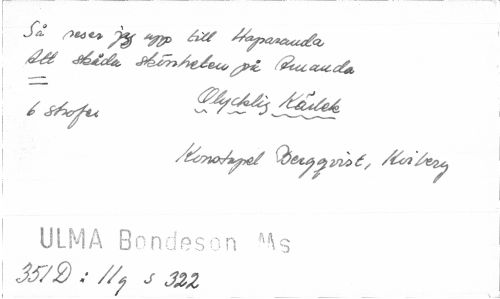 Så reser jag upp till Haparanda
Att skåda skönheten på Amanda
6 strofer
Olycklig Kärlek
Konstapel Bergqvist, Kviberg
ULMA Bondeson Ms
351D : 11q s 322